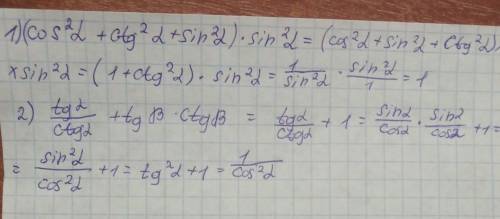 1) (cos²α + ctg²α + sin²α) · sin²α = (cos²α + sin²α + ctg²α)
× sin²α = (1 + ctg²α) · sin²α = 1/sin²α · sin²α/1 = 1
2) tgα/ctgα + tgβ · ctgβ = tgα/ctgα + 1 = sinα/cosα · sinα/cosα + 1 =
= sin²α/cos²α + 1 = tg²α + 1 = 1/cos²α